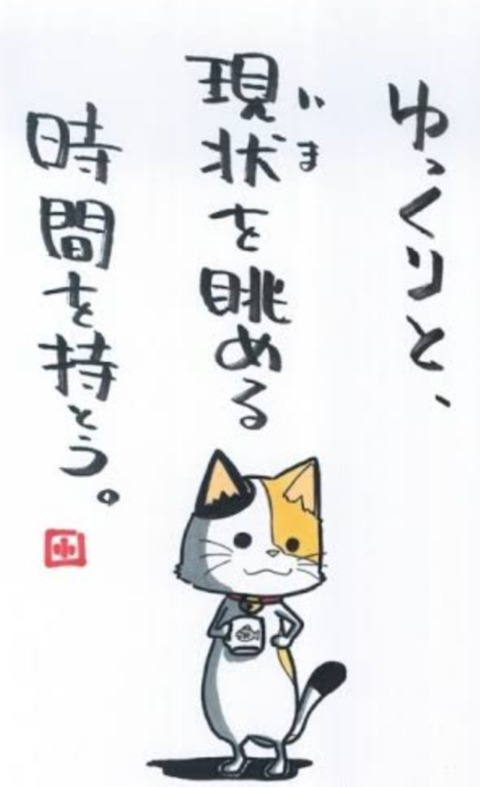 ゆっくりと、
現状を眺める
いま
時間を持とう。